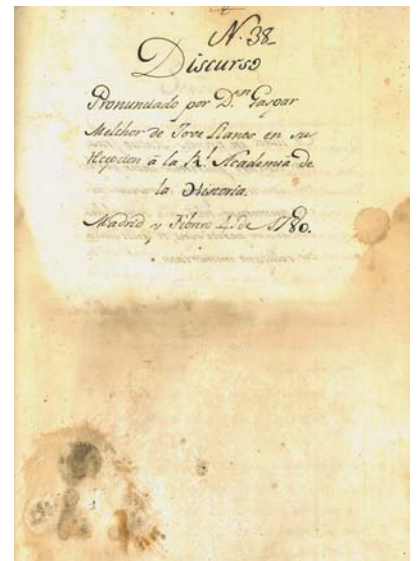 N. 38_
Discurso
Pronunciado por D.ⁿ Gaspar
Melchor de Jove Llanos en su
recepcion à la R.l Academia de
la Historia.
Madrid y Febrero 4. de 1780.